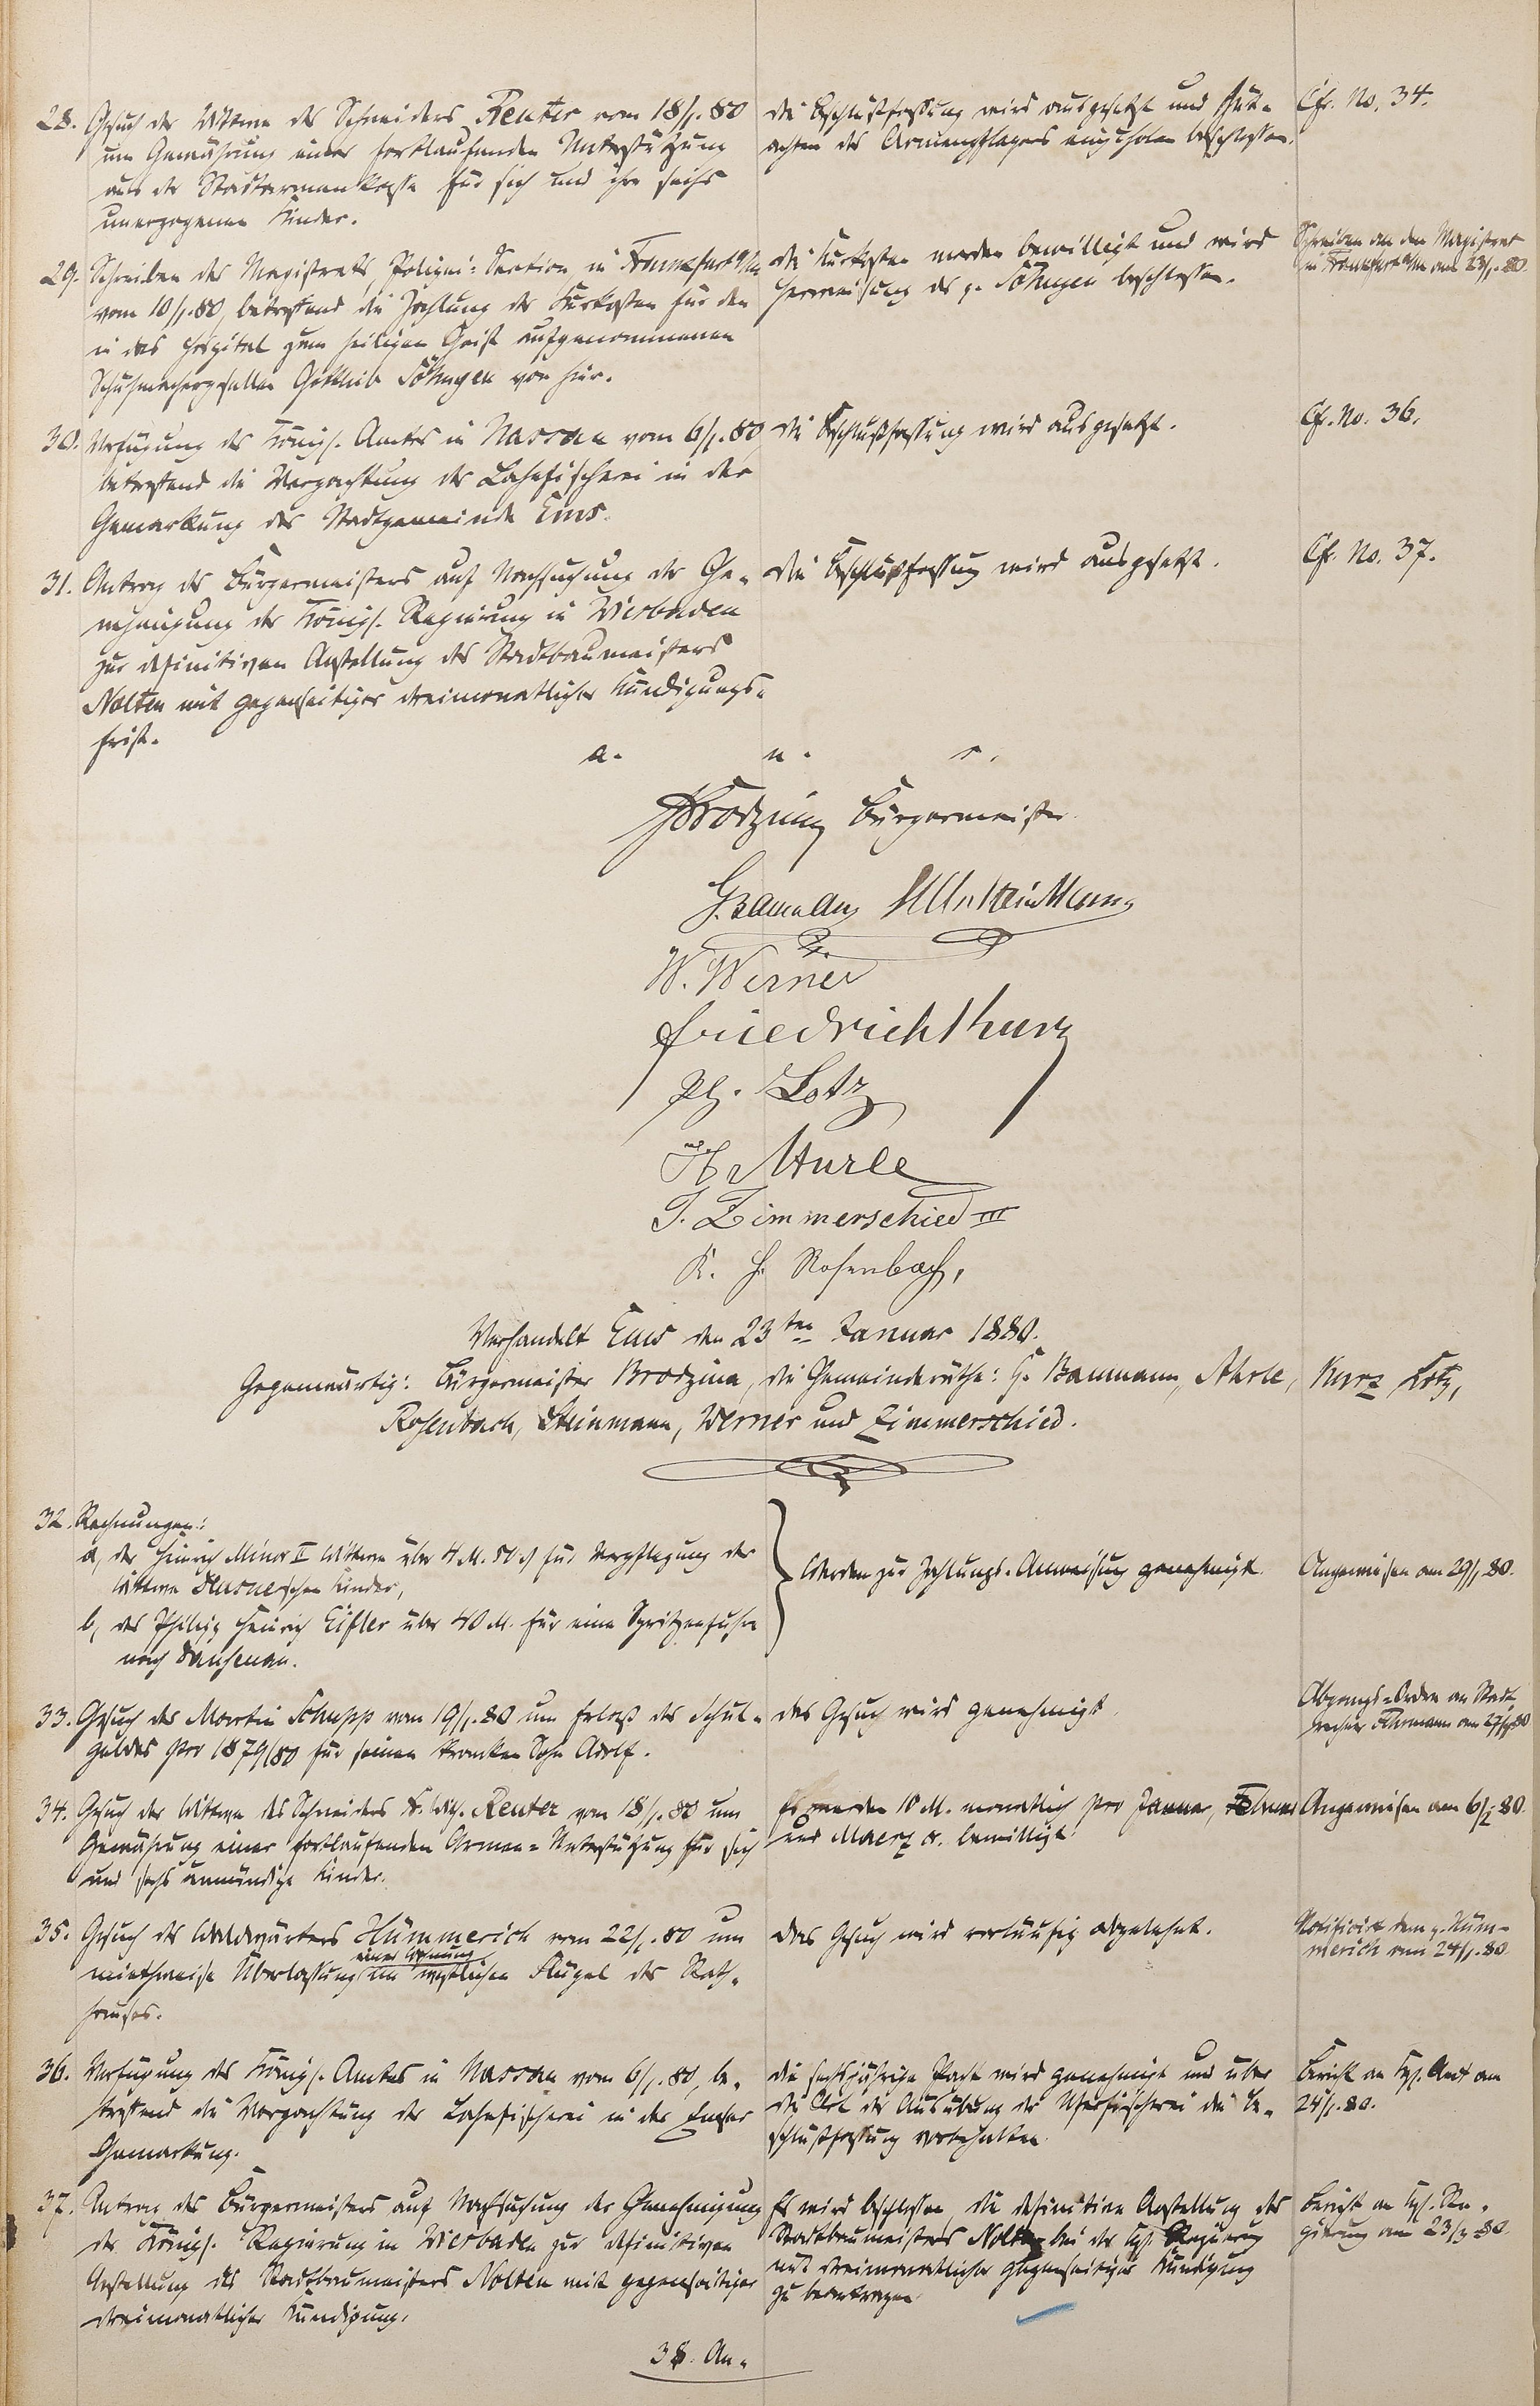 28. Gesuch der Wittwe des Schneiders Reuter vom 18/1. 80
um Gewährung einer fortlaufenden Unterstützung
aus der Stadtarmenkasse für sich und ihre sechs
unerzogenen Kinder.
Die Beschlußfassung wird ausgesetzt und Gut-
achten des Armenpflegers einzuholen beschlossen.
Cfr. No. 34.
29. Schreiben des Magistrats, Polizei-Section, in Frankfurt a/M
vom 10/1. 80, betreffend die Zahlung der Kurkosten für den
in das Hospital zum heiligen Geist aufgenommenen
Schuhmachergesellen Gottlieb Söhngen von hier.
Die Kurkosten werden bewilligt und wird
Herweisung des p. Söhngen beschlossen.
Schreiben an den Magistrat
in Frankfurt a/M am 23/1. 80.
30. Verfügung des Königl. Amtes in Nassau vom 6/1. 80,
betreffend die Verpachtung der Lahnfischerei in der
Gemarkung der Stadtgemeinde Ems.
Die Beschlußfassung wird ausgesetzt.
Cfr. No. 36.
31. Antrag des Bürgermeisters auf Nachsuchung der Ge-
nehmigung der Königl. Regierung in Wiesbaden
zur definitiven Anstellung des Stadtbaumeisters
Nolten mit gegenseitiger dreimonatlicher Kündigungs-
frist.
Die Beschlußfassung wird ausgesetzt.
Cfr. No. 37.
a. u. s.
Brodzina Bürgermeister
G. Baumann Steinmann
W. Werner
Friedrich Kurz
Ph. Lotz
J. Zimmerschied III
K. H. Rosenbach,
Verhandelt Ems den 23ten Januar 1880.
Gegenwärtig: Bürgermeister Brodzina, die Gemeinderäthe: G. Baumann, Ahrle, Kurz Lotz,
Rosenbach, Steinmann, Werner und Zimmerschied.
32. Rechnungen:
a, der Heinrich Minor II Wittwe über 4 M. 50 ₰ für Verpflegung der
Wittwe schen Kinder,
b, des Philipp Heinrich Eifler über 40 M. für eine Spritzenfuhre
nach Dausenau.
Werden zur Zahlungs-Anweisung genehmigt.
Angewiesen am 29/1. 80.
33. Gesuch des Martin Schupp vom 19/1. 80 um Erlaß des Schul-
geldes pro 1879/80 für seinen kranken Sohn Adolf.
Das Gesuch wird genehmigt.
Abgangs-Order an Stadt-
rechner am 27/1 80
34. Gesuch der Wittwe des Schneiders Reuter vom 18/1. 80 um
Gewährung einer fortlaufenden Armen-Unterstützung für sich
und sechs unmündige Kinder.
Es werden 10 M. monatlich pro Januar, Februar
und Maerz cr. bewilligt.
Angewiesen am 6/2 80.
35. Gesuch des Waldwärters Hümmerich vom 22/1. 80 um
miethweise Überlassung einer Wohnung im westlichen Flügel des Rath-
hauses.
Das Gesuch wird vorläufig abgelehnt.
Notificirt dem p. Hüm-
merich am 24/1. 80.
36. Verfügung des Königl. Amtes in Nassau vom 6/1. 80, be-
treffend die Verpachtung der Lahnfischerei in der Emser
Gemarkung.
Die sechsjährige Pacht wird genehmigt und über
die Art der Ausübung der Uferfischerei die Be-
schlußfassung vorbehalten.
Bericht an Kgl. Amt am
24/1. 80.
37. Antrag des Bürgermeisters auf Nachsuchung der Genehmigung
der Königl. Regierung in Wiesbaden zur definitiven
Anstellung des Stadtbaumeisters Nolten mit gegenseitiger
dreimonatlicher Kündigung.
Es wird beschlossen, die definitive Anstellung des
Stadtbaumeisters Nolten bei der Kgl. Regierung
mit dreimonatlicher gegenseitiger Kündigung
zu beantragen.
Bericht an Kgl. Re-
gierung am 23/1 80.
38. An-